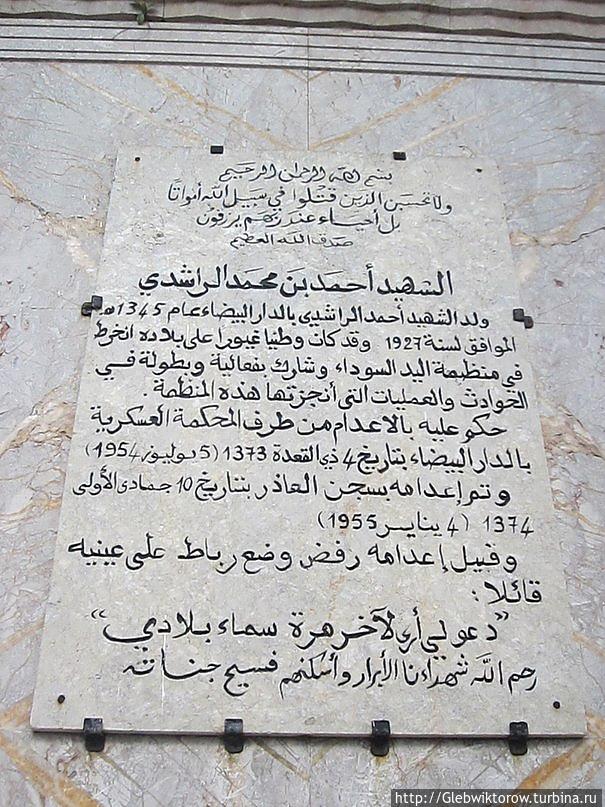 بسم الله الرحمان الرحيم
ولا تحسبن الذين قتلوا في سبيل الله أمواتا
بل أحياء عند ربهم يرزقون
صدق الله العظيم
الشهيد أحمد بن محمد الراشدي
ولد الشهيد أحمد الراشدي بالدار البيضاء عام 1345 هـ
الموافق لسنة 1927 وقد كان وطنيا غيورا على بلاده انخرط
في منظمة اليد السوداء وشارك بفعالية وبطولة في
الحوادث والعمليات التي أنجزتها هذه المنظمة.
حكم عليه بالاعدام من طرف المحكمة العسكرية
بالدار البيضاء بتاريخ 4 ذي القعدة 1373 (5 يوليوز 1954)
وتم إعدامه بسجن العاذر بتاريخ 10 جمادى الأولى
1374 (4 ينايـر 1955)
وقبيل إعدامه رفض وضع رباط على عينيه
قائلا:
"دعوني أرى لآخر مرة سماء بلادي"
رحم الله شهداءنا الأبرار وأسكنهم فسيح جناته
http://Glebwiktorow.turbina.ru/